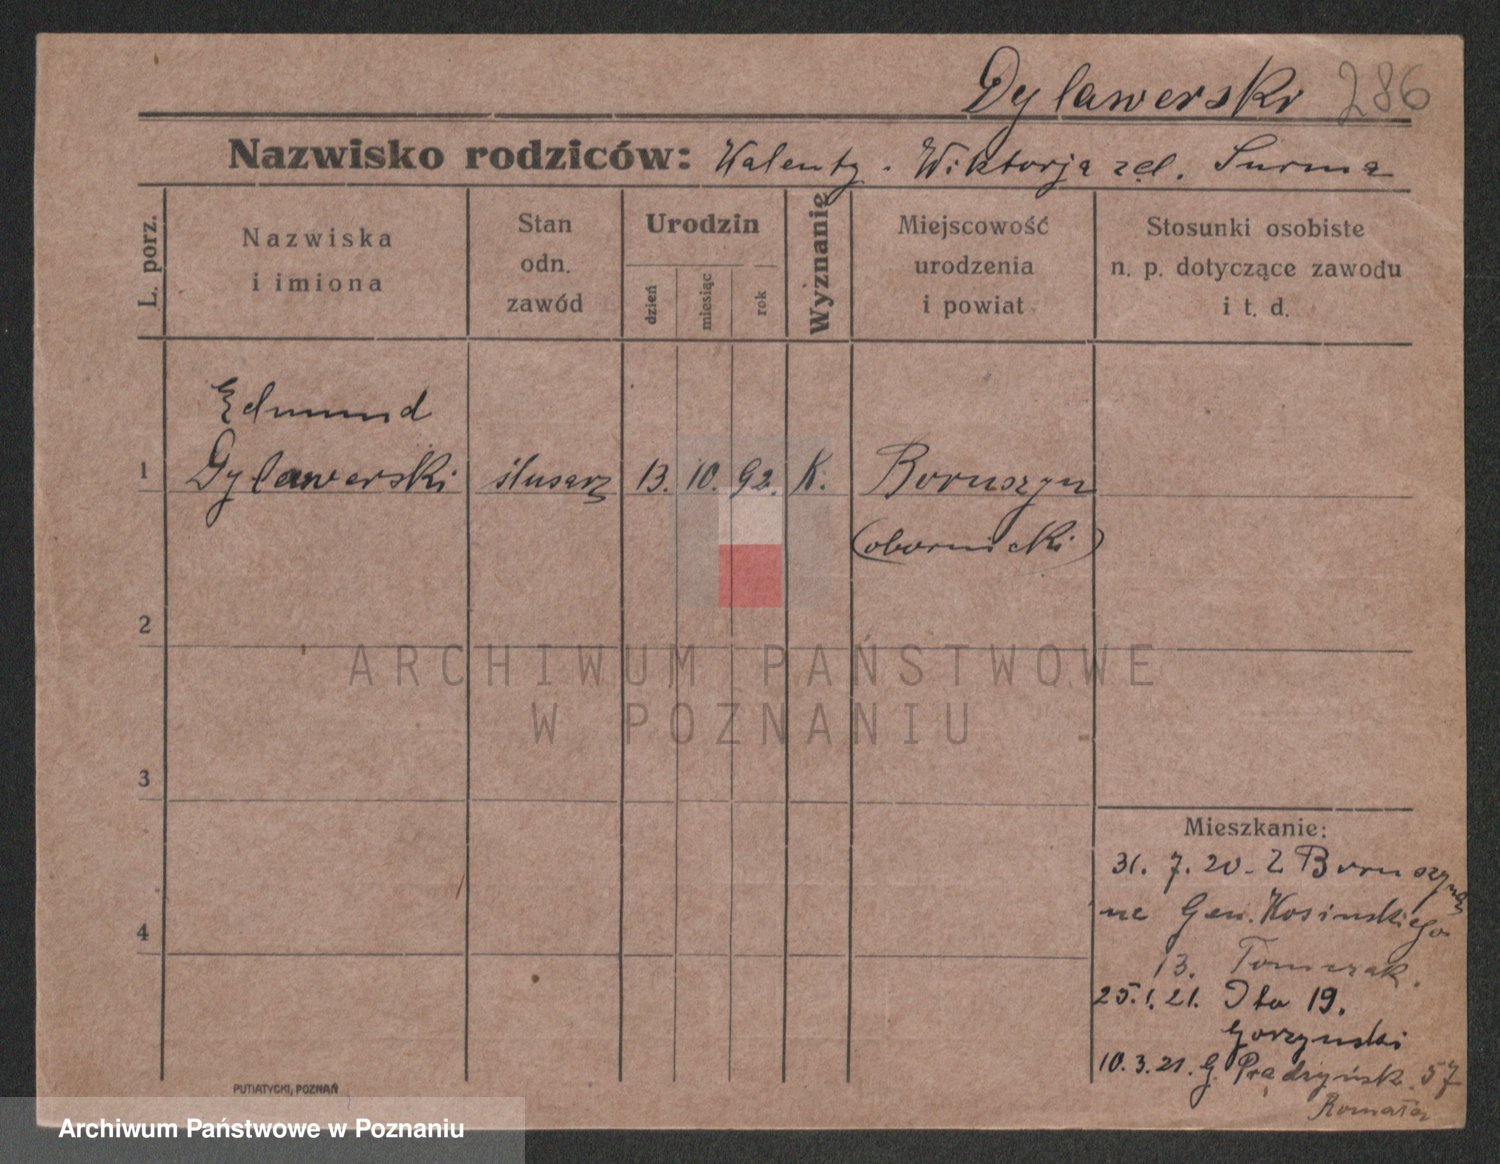 Dylawerski 286
Nazwisko rodziców: Walenty - Wiktorja zd. Surma
L. porz.
Nazwiska
i imiona
Stan
odn.
zawód
Urodzin
dzień
miesiąc
rok
Wyznanie
Miejscowość
urodzenia
i powiat
Stosunki osobiste
n. p. dotyczące zawodu
i t. d.
Edmund
1 Dylawerski ślusarz 13. 10. 92. K. Boruszyn
(obornicki)
2
ARCHIWUM PAŃSTWOWE
W POZNANIU
3
Mieszkanie:
31. 7. 20. Z Boruszyna
na Gen. Kosinskiego
4
13. Tomczak.
25.1.21. Dto 19.
Gorzynski
10.3.21. G. Prądzyńsk. 57
PUTIATYCKI, POZNAŃ
Archiwum Państwowe w Poznaniu